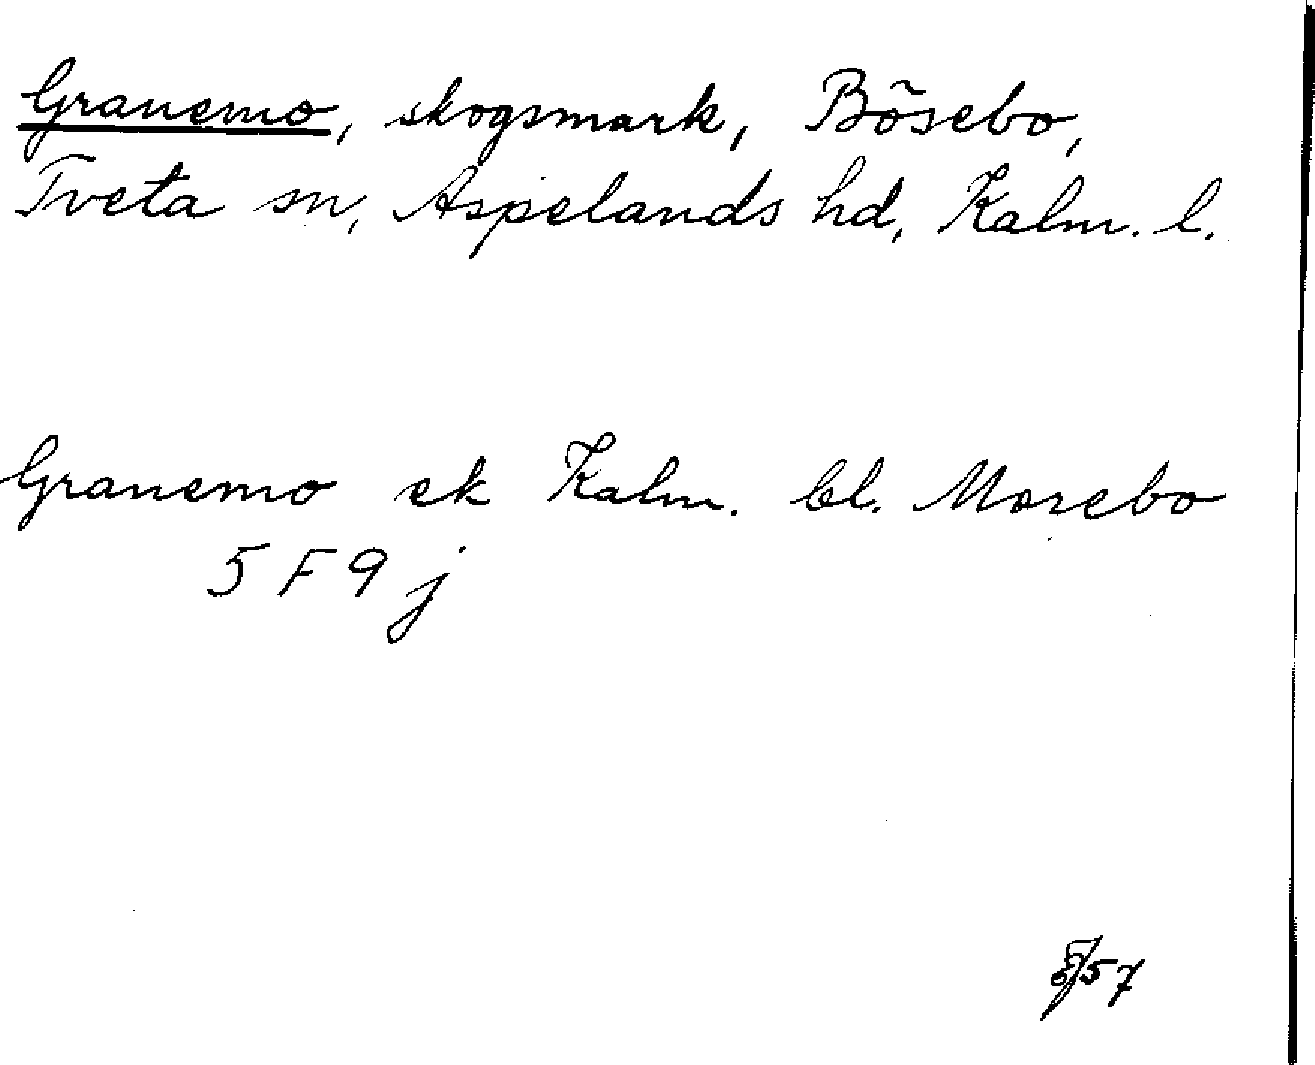 Granemo, skogsmark, Bösebo,
Tveta sn, Aspelands hd, Kalm. l.
Granemo ek Kalm. bl. Morebo
5 F 9 j
/57